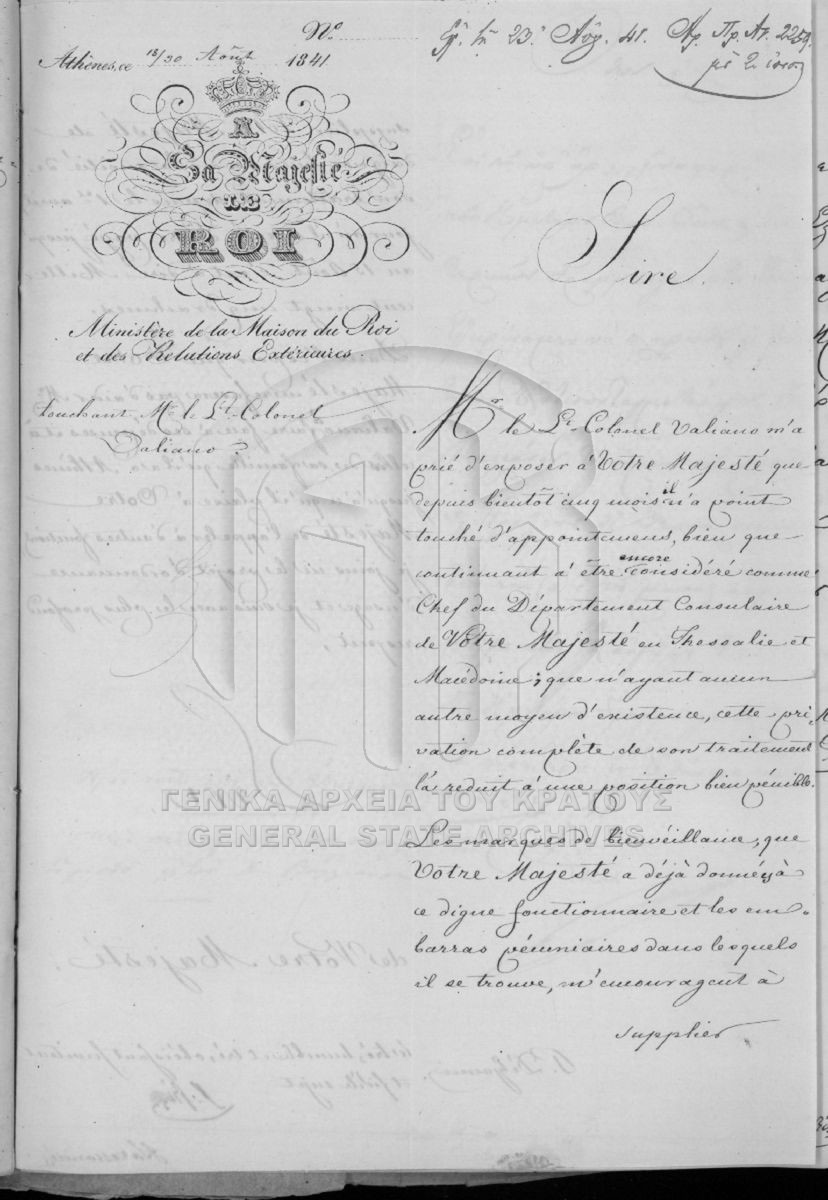 Nº
Athènes, ce 18/30 Août 1841
23 Αὐγ. 41. Ἀρ. Πρ. Αρ. 2259.
A
Sa Majesté
LE
ROI
Ministère de la Maison du Roi
et des Relutions Extérieures.
touchant Mr. le Lt-Colonel
Valiano.
Sire.
Mr le Lt-Colonel Valiano m'a
prié d'exposer à Votre Majesté que
depuis bientôt cinq mois il n'a point
touché d'appointemens, bien que
continuant à être encore considéré comme
Chef du Département Consulaire
de Votre Majesté en Thessalie et
Macédoine; que n'ayant aucun
autre moyen d'existence, cette pri-
vation complète de son traitement
l'a réduit à une position bien pénible.
Les marques de bienvéillance, que
Votre Majesté a déjà données à
ce digne fonctionnaire et les em-
barras pécuniaires dans lesquels
il se trouve, m'encouragent à
supplier
ΓΕΝΙΚΑ ΑΡΧΕΙΑ ΤΟΥ ΚΡΑΤΟΥΣ
GENERAL STATE ARCHIVES